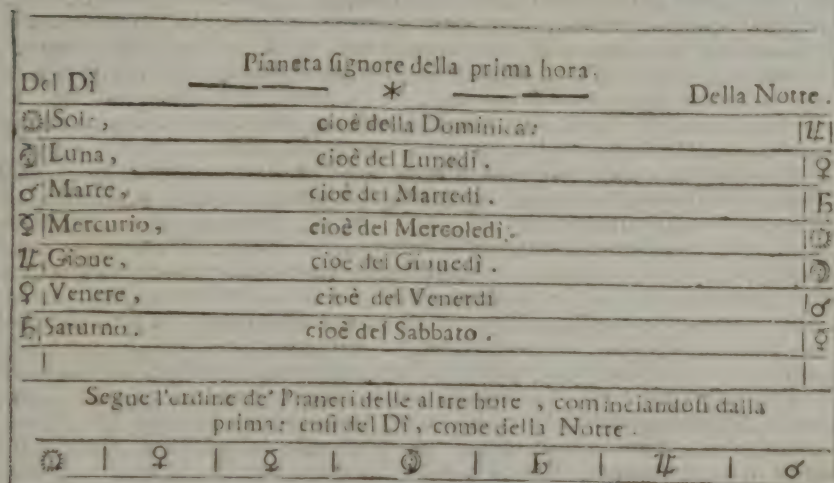 Pianeta ſignore della prima hora.
Del Dì * Della Notte.
☉ Sole, cioè della Dominica: ♃
☽ Luna, cioè del Lunedì. ♀
♂ Marte, cioè del Martedì. ♄
☿ Mercurio, cioè del Mercoledì. ☉
♃ Gioue, cioè del Giouedì. ☽
♀ Venere, cioè del Venerdì ♂
♄ Saturno. cioè del Sabbato. ☿
Segue l'ordine de' Pianeti delle altre hore, cominciandoſi dalla
prima: coſi del Dì, come della Notte.
☉ | ♀ | ☿ | ☽ | ♄ | ♃ | ♂